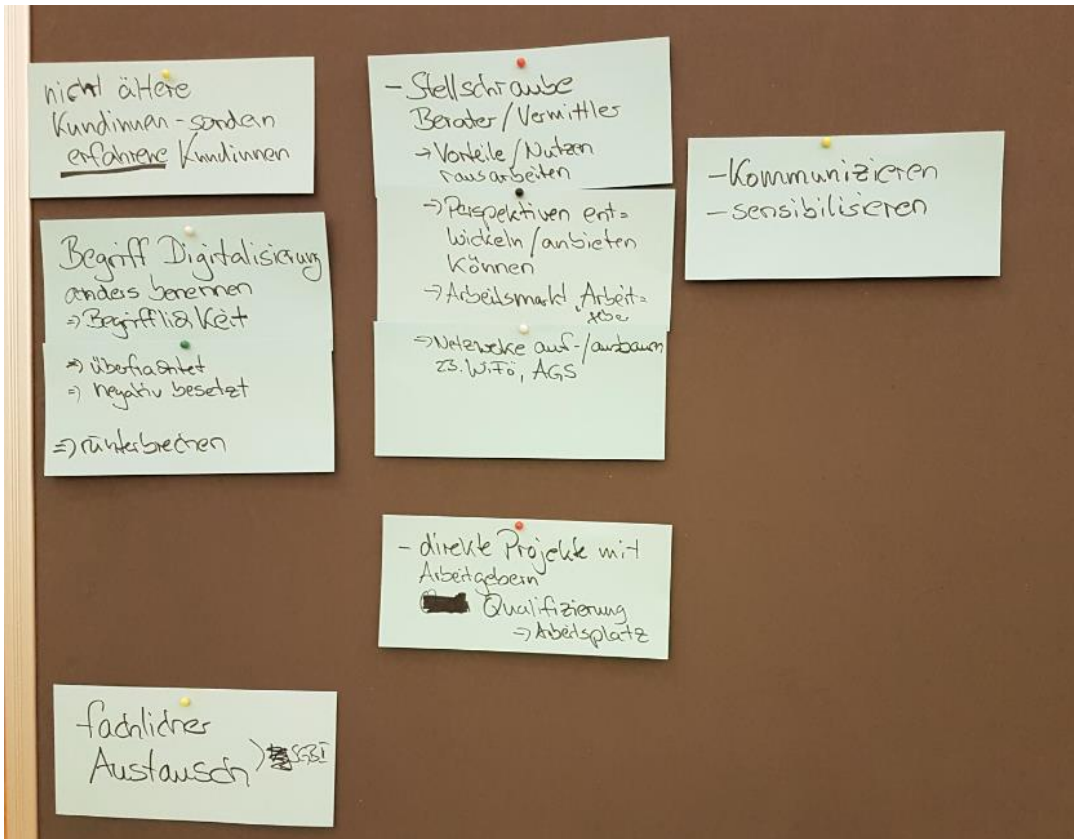 nicht ältere
Kundinnen - sondern
erfahrene Kundinnen
Begriff Digitalisierung
anders benennen
=> Begrifflichkeit
=> überfrachtet
=> negativ besetzt
=> runterbrechen
fachlicher
Austausch
- Stellschraube
Berater/Vermittler
→ Vorteile/Nutzen
rausarbeiten
=> Perspektiven ent=
wickeln/anbieten
können
=> Arbeitsmarkt, Arbeit=
geber
=> Netzwerke auf-/ausbauen
z.B. WiFö, AGS
- direkte Projekte mit
Arbeitgebern
Qualifizierung
=> Arbeitsplatz
- Kommunizieren
- sensibilisieren